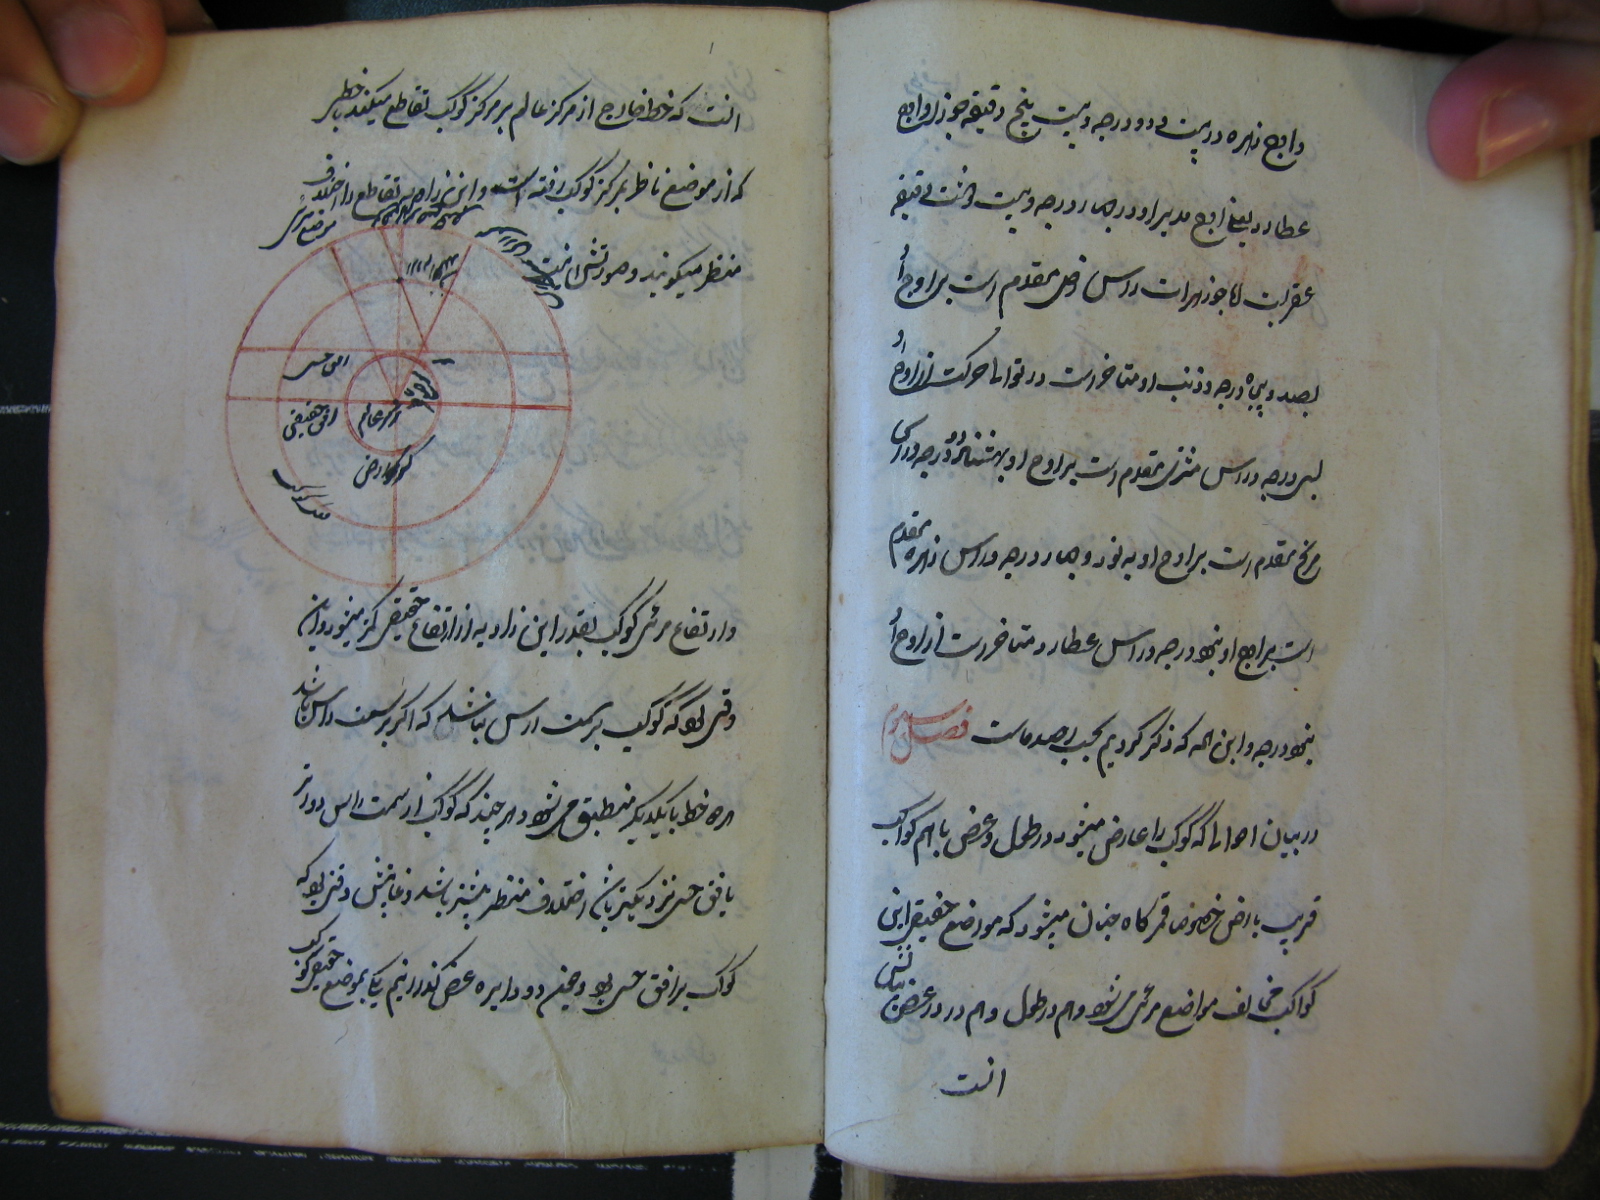 و اوج زهره در بیست و دو درجه و بیست پنج دقیقه جوزا و اوج
عطارد یعنی اوج مدیر او در چهار درجه و بیست و هشت دقیقه
عقربست اما جوزهرات راس زحل مقدم است بر اوج او
بصد و پنجاه درجه و ذنب او متاخرست در توالی حرکت از اوج او
بسی درجه و راس مشتری مقدم است بر اوج او بهشتاد و دو درجه و راس
مریخ مقدم است بر اوج او به نود و چهار درجه و راس زهره مقدم
است بر اوج او بنود درجه و راس عطارد متاخرست از اوج او
بنود درجه و این همه که ذکر کردیم بحسب رصد ماست فصل سیوم
در بیان احوالی که کوکب را عارض میشود در طول و عرض با هم کواکب
قریب بارض خصوصا قمر گاه چنان میشود که مواضع حقیقی این
کواکب مخالف مواضع مرئی می شود و هم در طول و هم در عرض بیانش
انست
انست که خط خارج از مرکز عالم بر مرکز کوکب تقاطع میکند با خطی
که از موضع ناظر بمرکز کوکب رفته است و این زاویه تقاطع را اختلاف
منظر میگویند و صورتش اینست
موضع مرئی
افق حسی
افق حقیقی
مرکز عالم
کره ارض
فلک کوکب
و ارتفاع مرئی کوکب بقدر این زاویه از ارتفاع حقیقی کمتر میشود و این
وقتی بود که کوکب بر سمت راس نباشد که اگر بر سمت راس باشد
هر دو خط با یکدیگر منطبق می شود و هر چند که کوکب از سمت راس دورتر
بافق حسی نزدیکتر باشد اختلاف منظر بیشتر باشد و غایتش وقتی بود که
کوکب بر افق حسی بود و چون دو دایره عرض گذرانیم یکی بموضع حقیقی کوکب